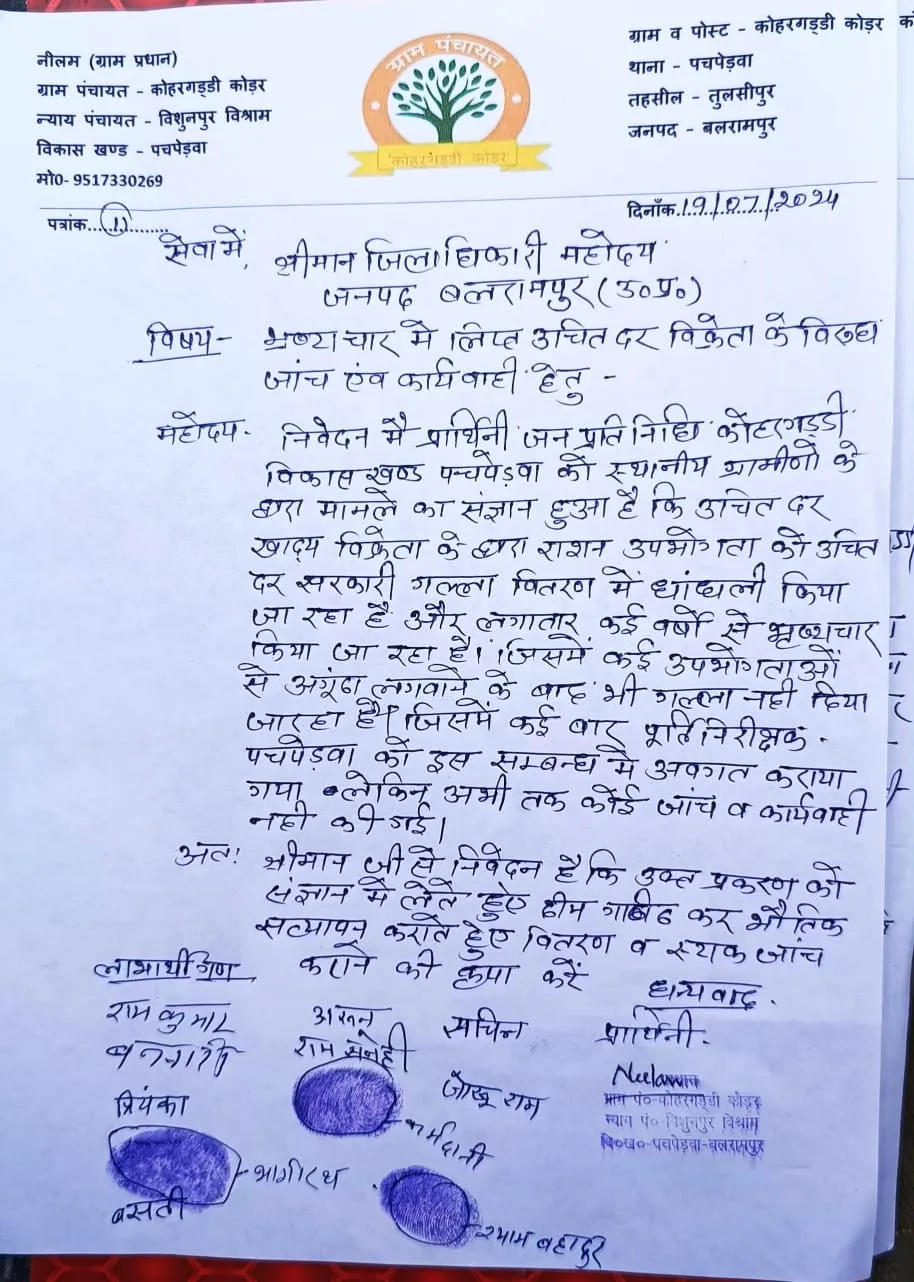 नीलम (ग्राम प्रधान)
ग्राम पंचायत - कोहरगड्डी कोड़र
न्याय पंचायत - विशुनपुर विश्राम
विकास खण्ड - पचपेड़वा
मो0- 9517330269
ग्राम पंचायत
कोहरगड्डी कोडर
ग्राम व पोस्ट - कोहरगड्डी कोड़र
थाना - पचपेड़वा
तहसील - तुलसीपुर
जनपद - बलरामपुर
पत्रांक...11........
दिनाँक.19/07/2024
सेवा में,
श्रीमान जिलाधिकारी महोदय
जनपद बलरामपुर (उ०प्र०)
विषय - भ्रष्याचार मे लिप्त उचित दर विक्रेता के विरुध
जांच एंव कार्यवाही हेतु -
महोदय- निवेदन मै प्रार्थिनी जन प्रतिनिधि कोहरगड्डी
विकास खण्ड पचपेड़वा को स्थानीय ग्रामीणों के
द्वारा मामले का संज्ञान हुआ है कि उचित दर
खाद्य विक्रेता के द्वारा राशन उपभोगता को उचित
दर सरकारी गल्ला वितरण में धांधली किया
जा रहा है और लगातार कई वर्षो से भ्रष्यचार
किया जा रहा है। जिसमें कई उपभोगताओं
से अगूंठा लगवाने के बाद भी गल्ला नही दिया
जा रहा है। जिसमें कई बार पूर्ति निरीक्षक -
पचपेड़वा को इस सम्बन्ध मे अवगत कराया
गया लेकिन अभी तक कोई जांच व कार्यवाही
नही की गई।
अतः श्रीमान जी से निवेदन है कि उक्त प्रकरण को
संज्ञान मे लेते हुए टीम गठित कर भौतिक
सत्यापन कराते हुए वितरण व स्टाक जांच
कराने की कृपा करें
लाभार्थीगण
धन्यवाद.
राम कुमार
अरुन
सचिन
प्रार्थिनी.
राम सनेही
Neelam
प्रियंका
जोखू राम
ग्राम पं०-कोहरगड्डी कोड़र
न्याय पं०-विशुनपुर विश्राम
वि०ख०-पचपेड़वा-बलरामपुर
भागीरथ
बसंती
श्याम बहादुर